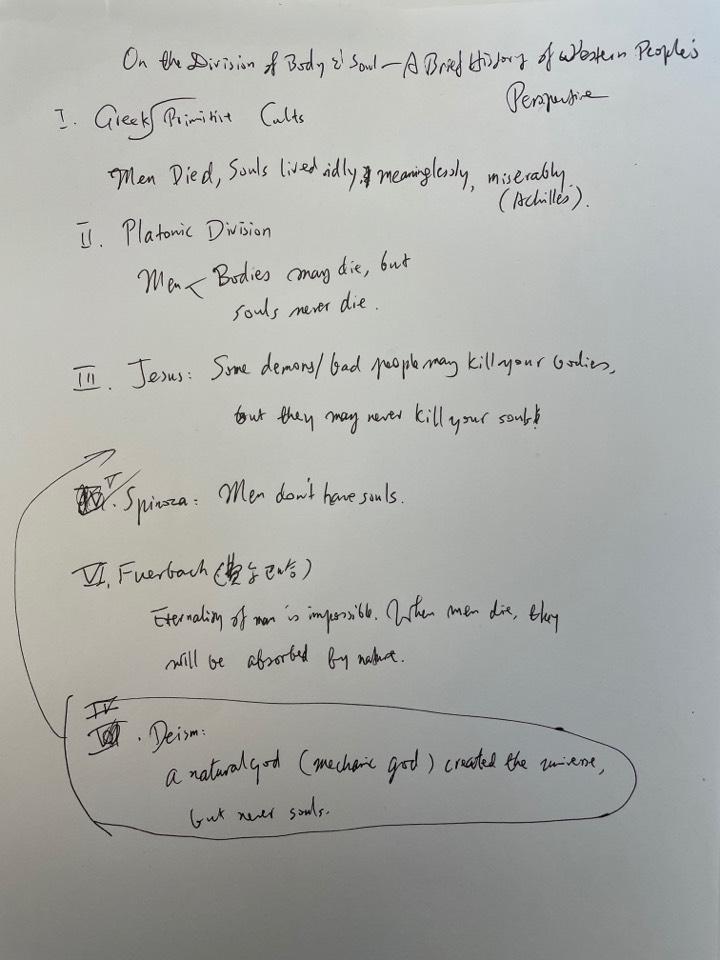 On the Division of Body & Soul — A Brief History of Western People's
Perspective
I. Greek Primitive Cults
Men Died, Souls lived idly, meaninglessly, miserably.
(Achilles).
II. Platonic Division
Men < Bodies may die, but
souls never die.
III. Jesus: Some demons/bad people may kill your bodies,
but they may never kill your souls!
V. Spinoza: Men don't have souls.
VI. Fuerbach (
Eternality of man is impossible. When men die, they
will be absorbed by nature.
IV
. Deism:
a natural god (mechanic god) created the universe,
but never souls.